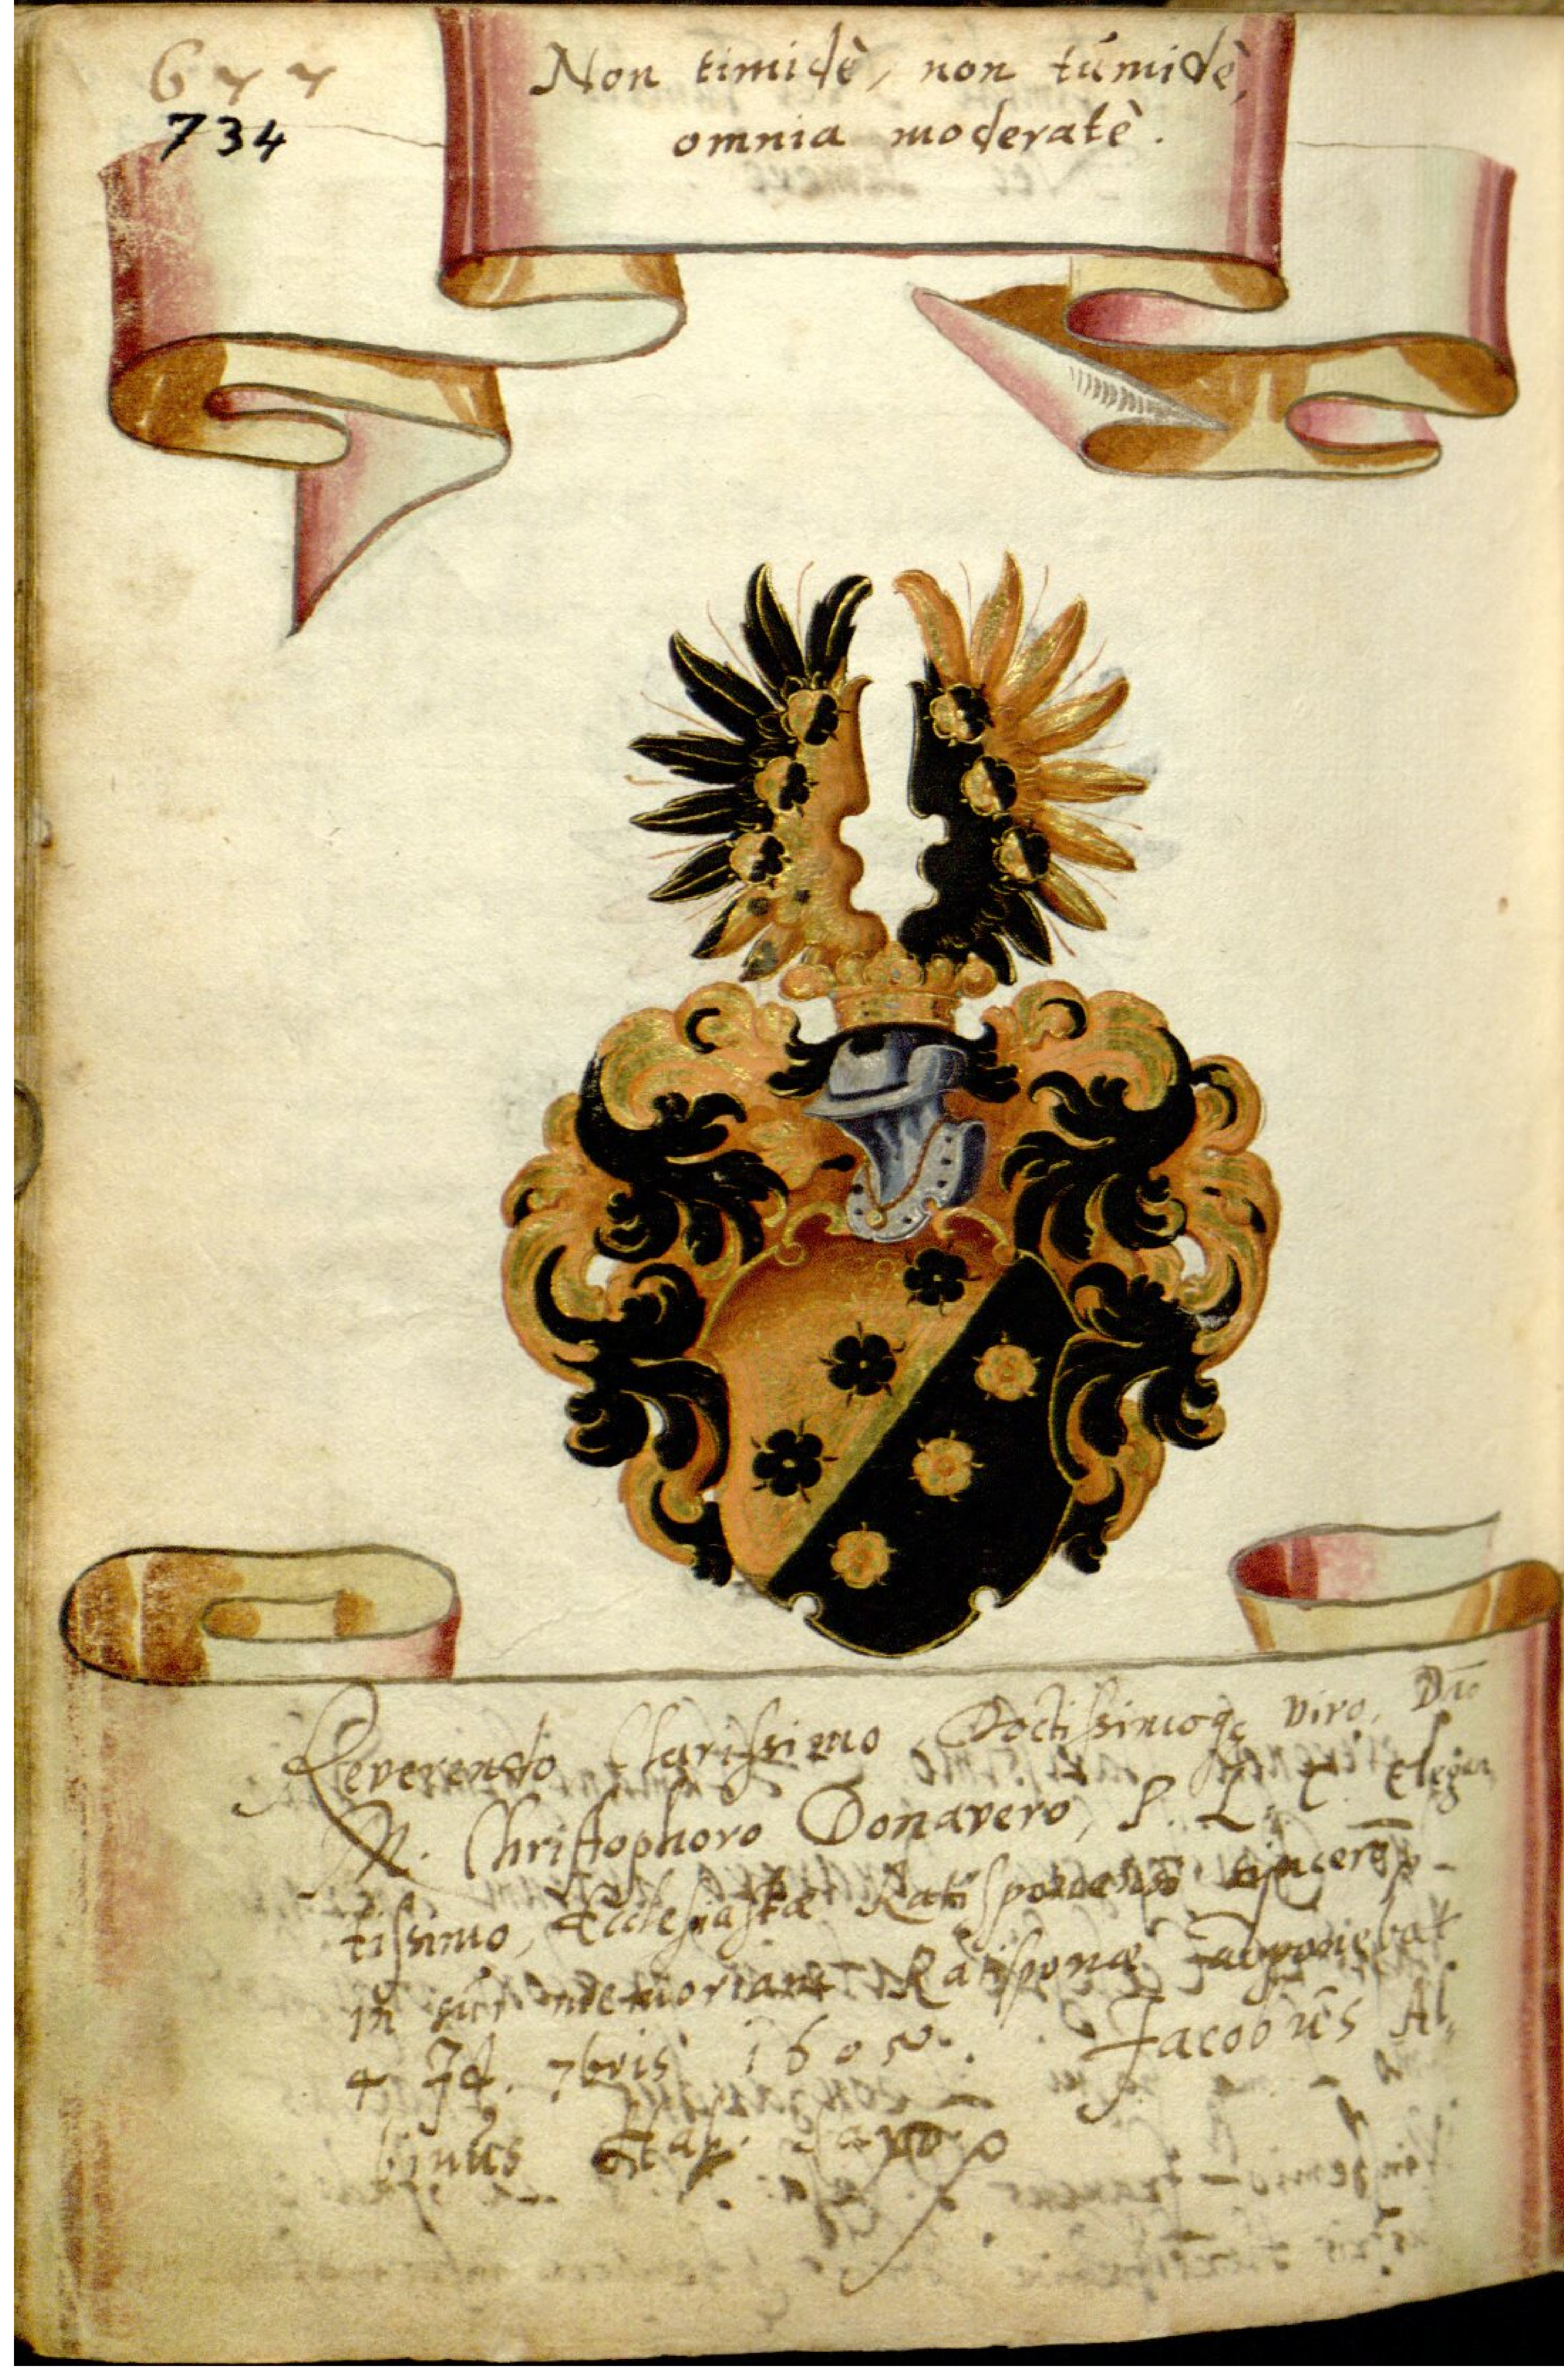 677
734
Non timidè, non túmidè,
omnia moderatè.
Reverendo Clarissimo Doctissimoq₃ viro, Dno
M. Christophoro Donavero, P. L. C. Elegan
tissimo, Ecclesiastæ Ratisponensi sincero,
in sui memoriam Ratisponæ apponebat
4 Id. 7bris 160 Jacobús Al,
binús